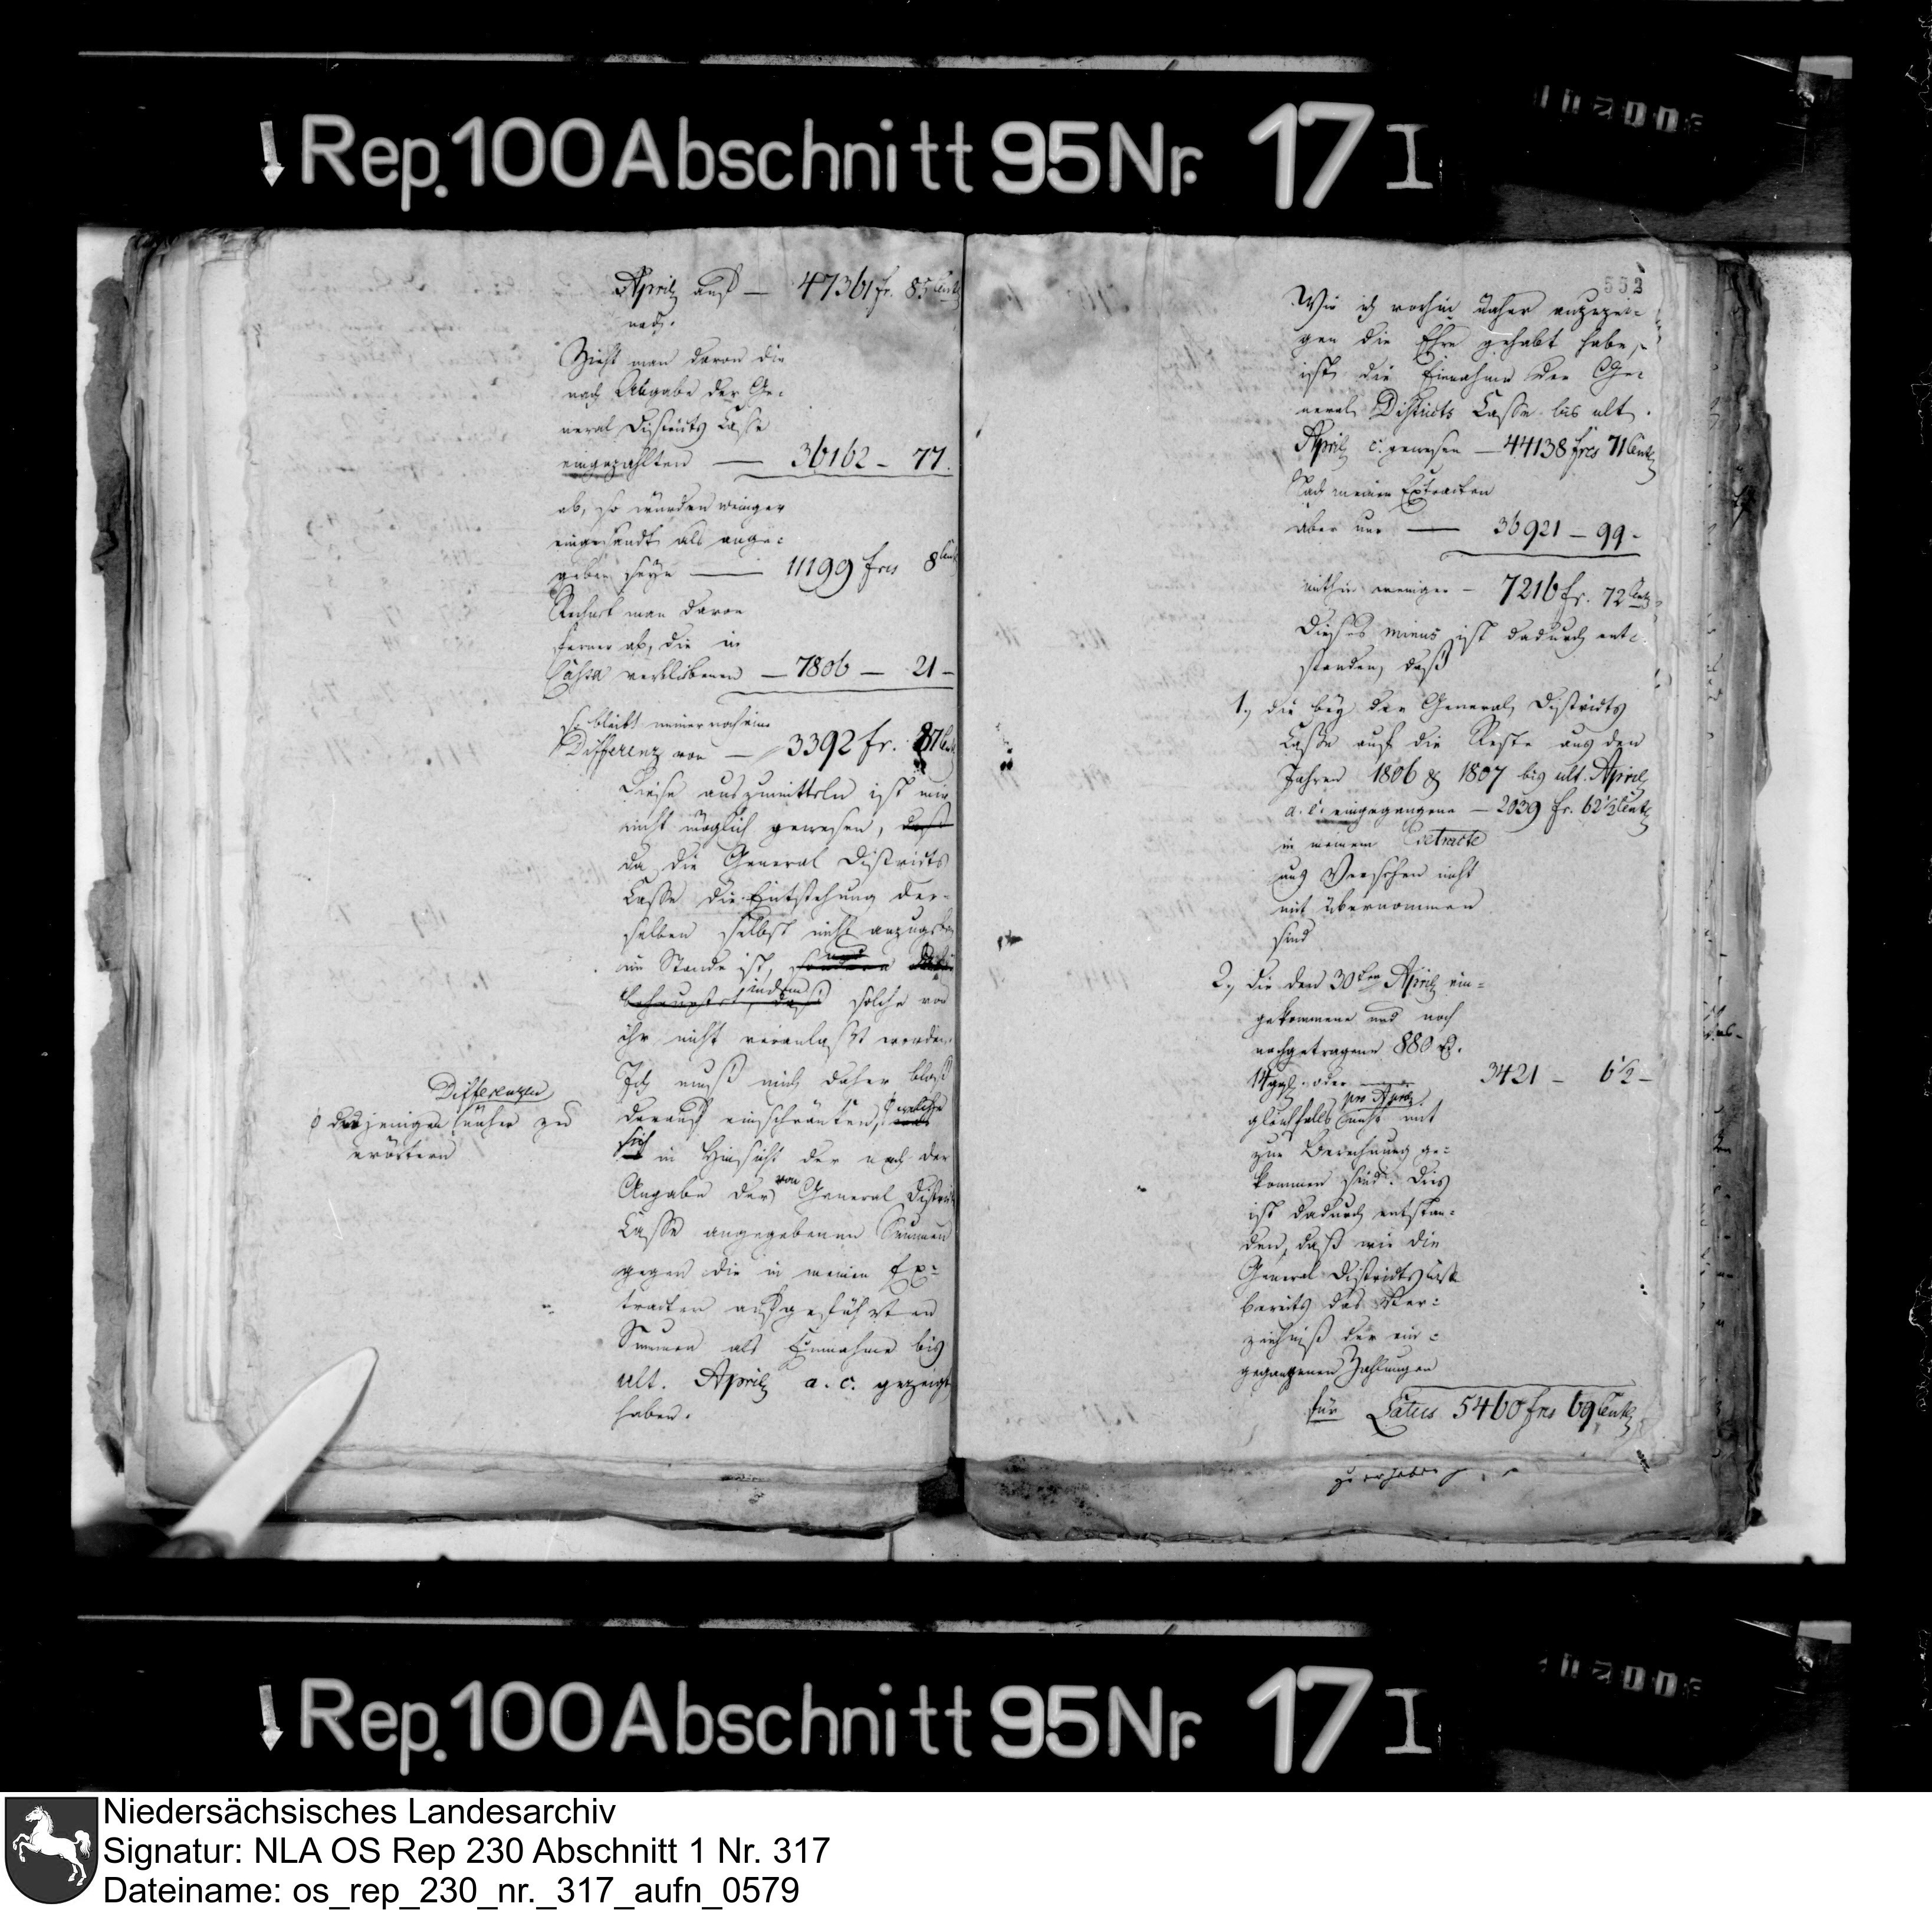 Rep. 100 Abschnitt 95 Nr. 17 I
April auf — 47361 fr. 85 Cent
nach.
Zieht man davon die
nach Abgabe der Ge=
neral Districts Casse
eingezahlten — 36162 — 77.
ab, so würden weniger
eingesandt als ange=
geben seyn — 11199 frcs 8 Cent
Rechnet man davon
ferner ab, die in
Cassa verbliebenen — 7806 — 21 —
so bleibt immer noch eine
Differenz von — 3392 fr. 87 Cent
Diese auszumitteln ist mir
nicht möglich gewesen, daß
da die General Districts
Casse die Entstehung der=
selben selbst nicht anzugeben
im Stande ist, sondern
behauptet, daß indem solche von
ihr nicht veranlaßt worden.
Ich muß mich daher bloß
darauf einschränken, welche
sich in Hinsicht der nach der
Angabe der von General District
Casse angegebenen Summen
gegen die in meinen Ex=
tracten aufgeführten
Summen als Einnahme bis
ult. April a. c. gezeigt
haben.
Differenzen
diejenigen näher zu
erörtern
552
Wie ich vorhin näher anzuzei=
gen die Ehre gehabt habe,
ist die Einnahme der Ge=
neral Districts Casse bis ult.
April c. gewesen — 44138 frcs 71 Cent
Nach meinen Extracten
aber nur — 36921 — 99 —
mithin weniger — 7216 fr. 72 Cent
Dieses minus ist dadurch ent=
standen, daß
1., die bey der General Districts
Casse auf die Reste aus den
Jahren 1806 & 1807 bis ult. April
a. c. eingegangene — 2039 fr. 62½ Cent
in meinem Extracte
aus Versehen nicht
mit übernommen
sind
2., die den 30ten April ein=
gekommene und noch
nachgetragene 880 rt.
14 ggl. oder 3421 — 6½ —
pro April
gleichfalls nicht mit
zur Berechnung ge=
kommen sind. Dies
ist dadurch entstan=
den, daß mir die
General Districts Casse
bereits das Ver=
zeichniß der ein=
gegangenen Zahlungen
für Latus 5460 frcs 69 Cent
Rep. 100 Abschnitt 95 Nr. 17 I
Niedersächsisches Landesarchiv
Signatur: NLA OS Rep 230 Abschnitt 1 Nr. 317
Dateiname: os_rep_230_nr._317_aufn_0579